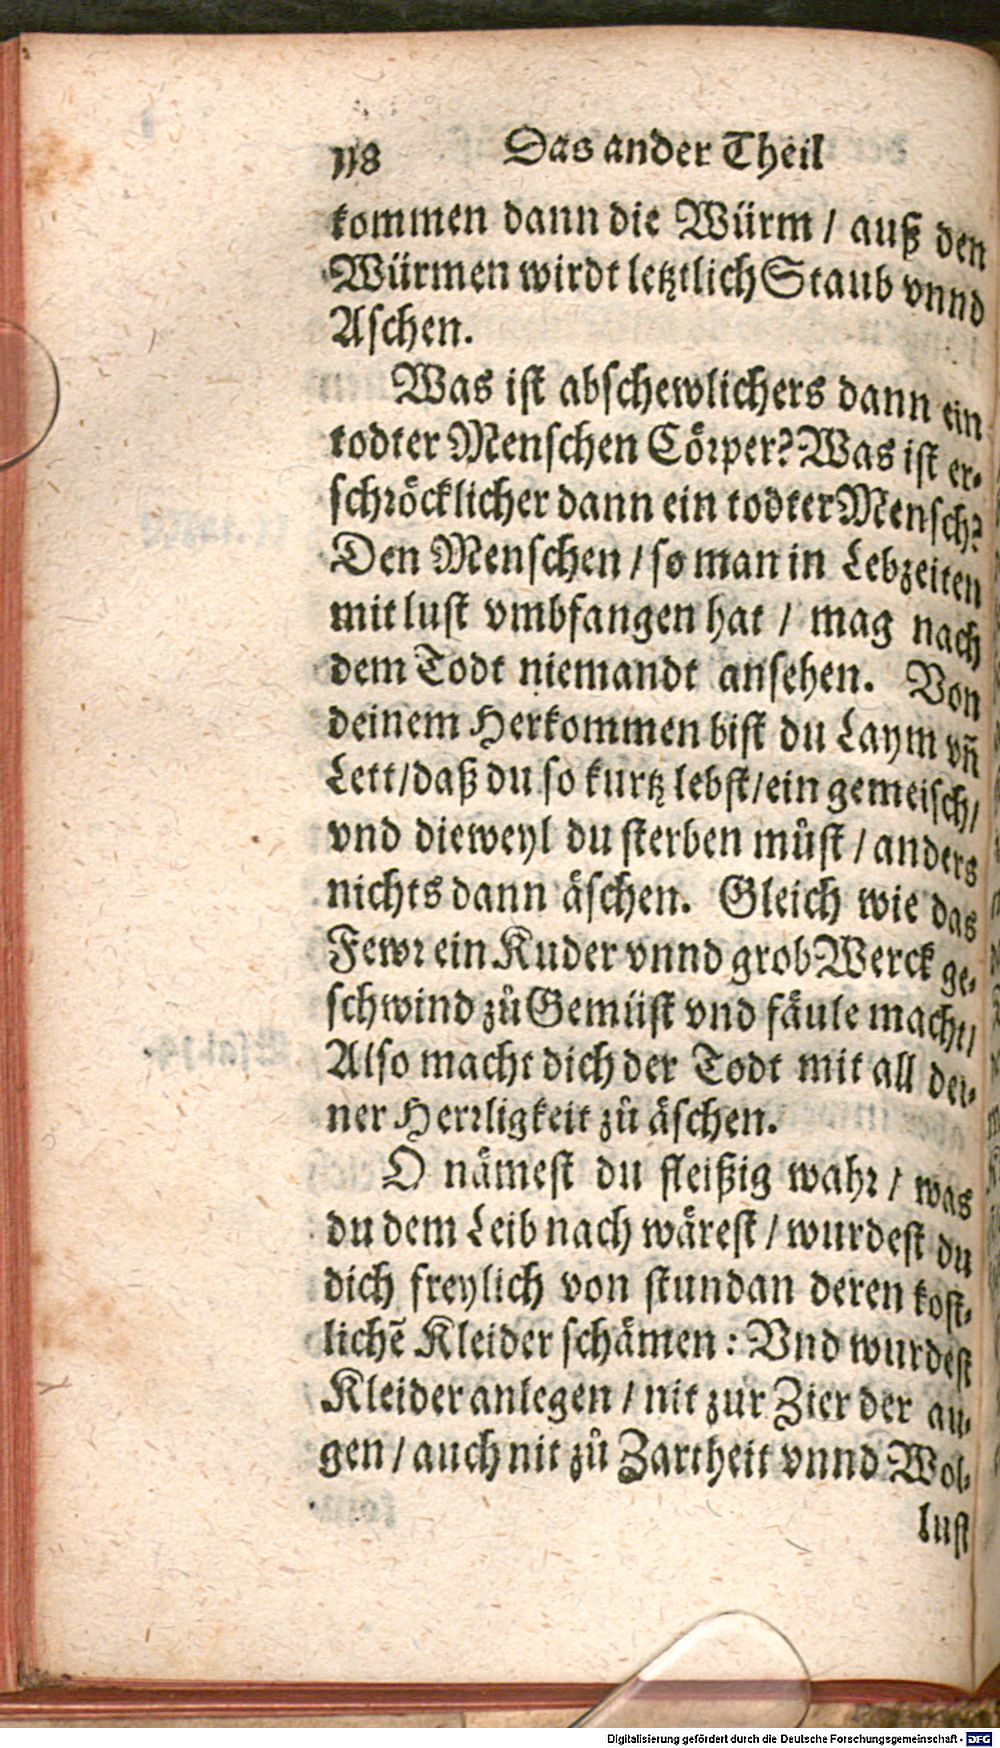 118 Das ander Theil
kommen dann die Würm / auß den
Würmen wirdt letztlich Staub vnnd
Aschen.
Was ist abschewlichers dann ein
todter Menschen Cörper? Was ist er-
schröcklicher dann ein todter Mensch?
Den Menschen / so man in Lebzeiten
mit lust vmbfangen hat / mag nach
dem Todt niemandt ansehen. Von
deinem Herkommen bist du Laym vñ
Lett / daß du so kurtz lebst / ein gemeisch /
vnd dieweyl du sterben můst / anders
nichts dann äschen. Gleich wie das
Fewr ein Kuder vnnd grob Werck ge-
schwind zů Gemüst vnd fäule macht /
Also macht dich der Todt mit all dei-
ner Herrligkeit zů äschen.
O nämest du fleißig wahr / was
du dem Leib nach wärest / wurdest du
dich freylich von stundan deren kost-
lichẽ Kleider schämen : Vnd wurdest
Kleider anlegen / nit zur Zier der au-
gen / auch nit zů Zartheit vnnd Wol-
lust
Digitalisierung gefördert durch die Deutsche Forschungsgemeinschaft - DFG